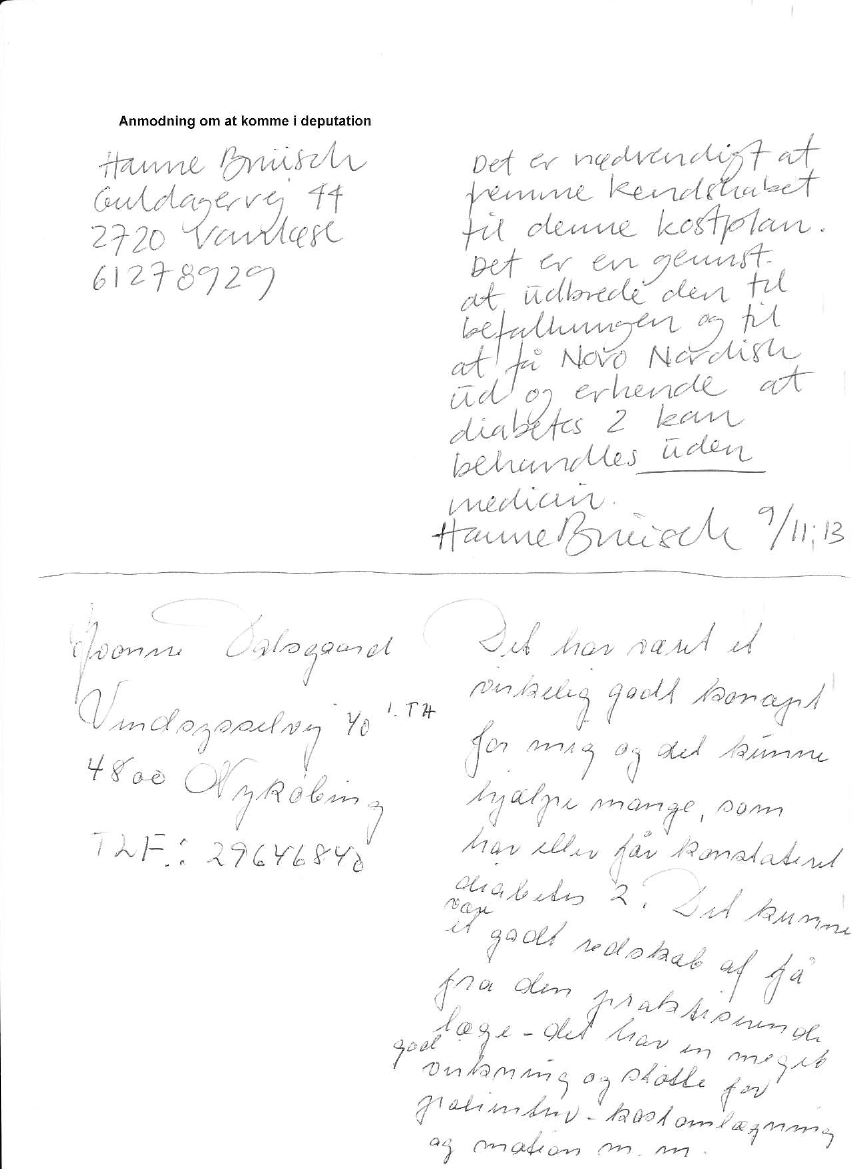 Anmodning om at komme i deputation
Hanne Bruisch
Guldagervej 44
2720 Vanløse
61278929
Det er nødvendigt at
fremme kendskabet
til denne kostplan.
Det er en geunst
at udbrede den til
befolkningen og til
at få Novo Nordisk
ud og erkende at
diabetes 2 kan
behandles uden
medicin.
Hanne Bruisch 9/11;13
Yvonne Dalsgaard
Vendsysselvej 40 1. TH
4800 Nykøbing
TLF.: 29646840
Det har været et
virkelig godt koncept
for mig og det kunne
hjælpe mange, som
har eller får konstateret
diabetes 2. Det kunne
være
et godt redskab at få
fra den praktiserende
læge - det har en meget
god
virkning og støtte for
patienten - kostomlægning
og motion m.m.